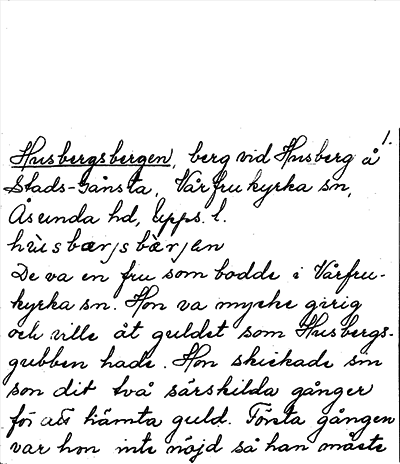 1.
Husbergsbergen, berg vid Husberg å
Stads-Gånsta, Vårfrukyrka sn,
Åsunda hd, Upps. l.
hùsbærjsbàrjen
De va en fru som bodde i Vårfru-
kyrka sn. Hon va mycke girig
och ville åt guldet som Husbergs-
gubben hade. Hon skickade sin
son dit två särskilda gånger
för att hämta guld. Första gången
var hon inte nöjd så han måste